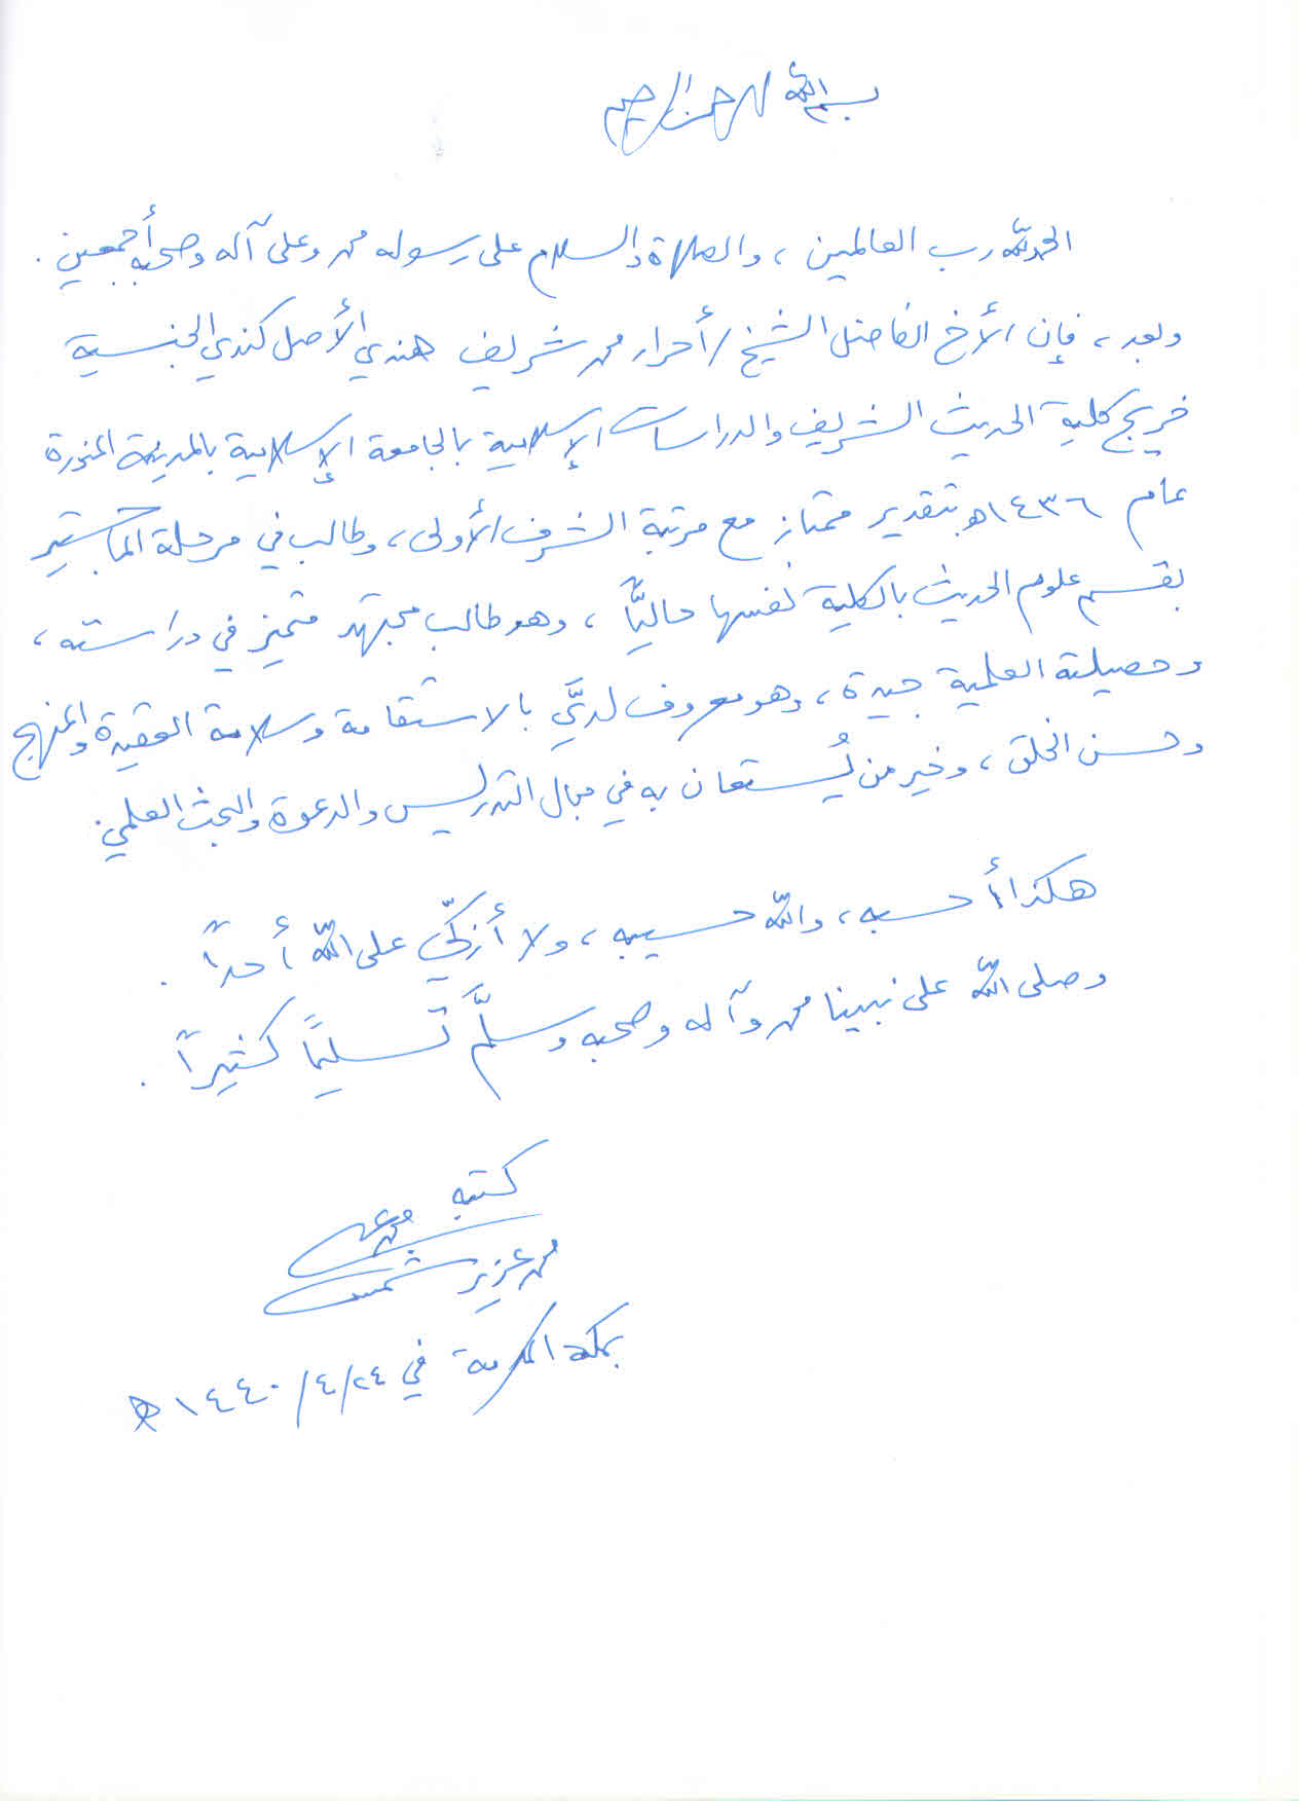 بسم الله الرحمن الرحيم
الحمد لله رب العالمين، والصلاة والسلام على رسوله محمد وعلى آله وصحبه أجمعين.
وبعد، فإن الأخ الفاضل الشيخ/ أحرار محمد شريف هندي الأصل كندي الجنسية
خريج كلية الحديث الشريف والدراسات الإسلامية بالجامعة الإسلامية بالمدينة المنورة
عام ١٤٣٦هـ بتقدير ممتاز مع مرتبة الشرف الأولى، وطالب في مرحلة الماجستير
بقسم علوم الحديث بالكلية نفسها حاليًّا، وهو طالب مجتهد متميز في دراسته،
وحصيلته العلمية جيدة، وهو معروف لديَّ بالاستقامة وسلامة العقيدة والمنهج
وحسن الخلق، وخير من يُستعان به في مجال التدريس والدعوة والبحث العلمي.
هكذا أحسبه، والله حسيبه، ولا أزكّي على الله أحدًا.
وصلى الله على نبينا محمد وآله وصحبه وسلَّم تسليمًا كثيرًا.
كتبه
محمد عزير شمس
بمكة المكرمة في ٢٤/٤/١٤٤٠هـ